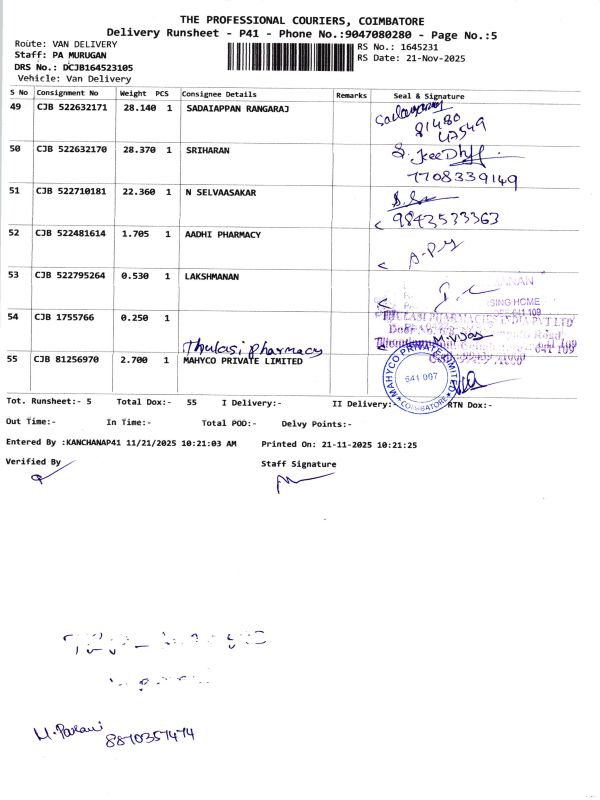 THE PROFESSIONAL COURIERS, COIMBATORE
Delivery Runsheet - P41 - Phone No.:9047080280 - Page No.:5
Route: VAN DELIVERY
Staff: PA MURUGAN
DRS No.: DCJB164523105
Vehicle: Van Delivery
RS No.: 1645231
RS Date: 21-Nov-2025
S No Consignment No Weight PCS Consignee Details Remarks Seal & Signature
49 CJB 522632171 28.140 1 SADAIAPPAN RANGARAJ
81480
47549
50 CJB 522632170 28.370 1 SRIHARAN
7708339149
51 CJB 522710181 22.360 1 N SELVAASAKAR
9842533363
52 CJB 522481614 1.705 1 AADHI PHARMACY
A-P-Y
53 CJB 522795264 0.530 1 LAKSHMANAN
SING HOME
641 109
54 CJB 1755766 0.250 1
Thulasi pharmacy
THULASI PHARMACIES INDIA PVT LTD
Road
641 109
55 CJB 81256970 2.700 1 MAHYCO PRIVATE LIMITED
MAHYCO PRIVATE LIMITED
641 007
COIMBATORE
Tot. Runsheet:- 5 Total Dox:- 55 I Delivery:- II Delivery:- RTN Dox:-
Out Time:- In Time:- Total POD:- Delvy Points:-
Entered By :KANCHANAP41 11/21/2025 10:21:03 AM Printed On: 21-11-2025 10:21:25
Verified By Staff Signature
8870357474